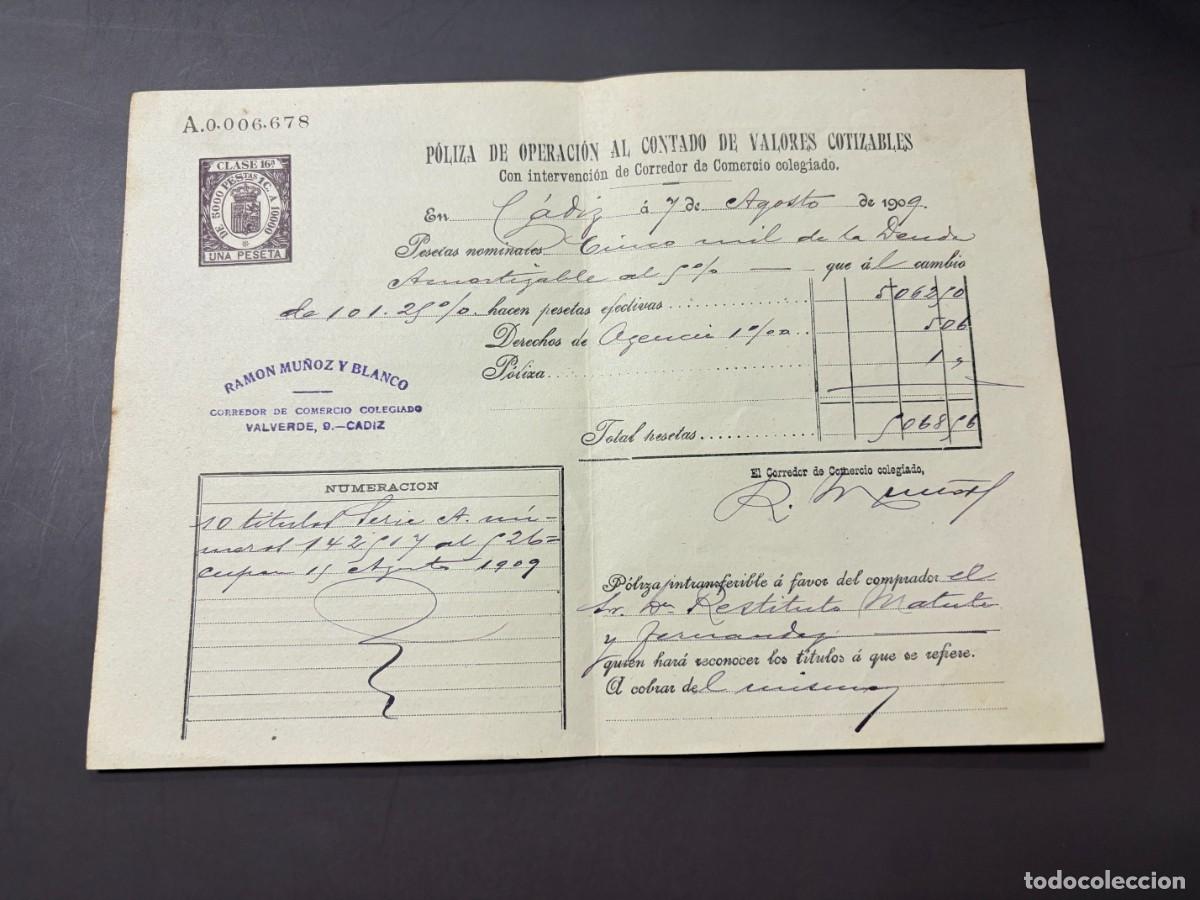 A.0.006.678
CLASE 16ª
DE 5000 PESTAS 1 C. A 10000
UNA PESETA
PÓLIZA DE OPERACIÓN AL CONTADO DE VALORES COTIZABLES
Con intervención de Corredor de Comercio colegiado.
En Cádiz á 7 de Agosto de 1909.
Pesetas nominales Cinco mil de la Deuda
Amortizable al 5% — que ál cambio
de 101.25%. hacen pesetas efectivas 5062 50
Derechos de Agencia 1 º/oo 5 06
Póliza 1 "
Total pesetas 5068 56
RAMON MUÑOZ Y BLANCO
CORREDOR DE COMERCIO COLEGIADO
VALVERDE, 9.—CADIZ
El Corredor de Comercio colegiado,
R. Muñoz
NUMERACION
10 titulos Serie A. nú-
meros 142517 al 526=
Cupon 15 Agosto 1909
Póliza intransferible á favor del comprador el
Sr. Dn Restituto Matute
y Fernandez —
quien hará reconocer los títulos á que se refiere.
A cobrar del mismo
todocoleccion